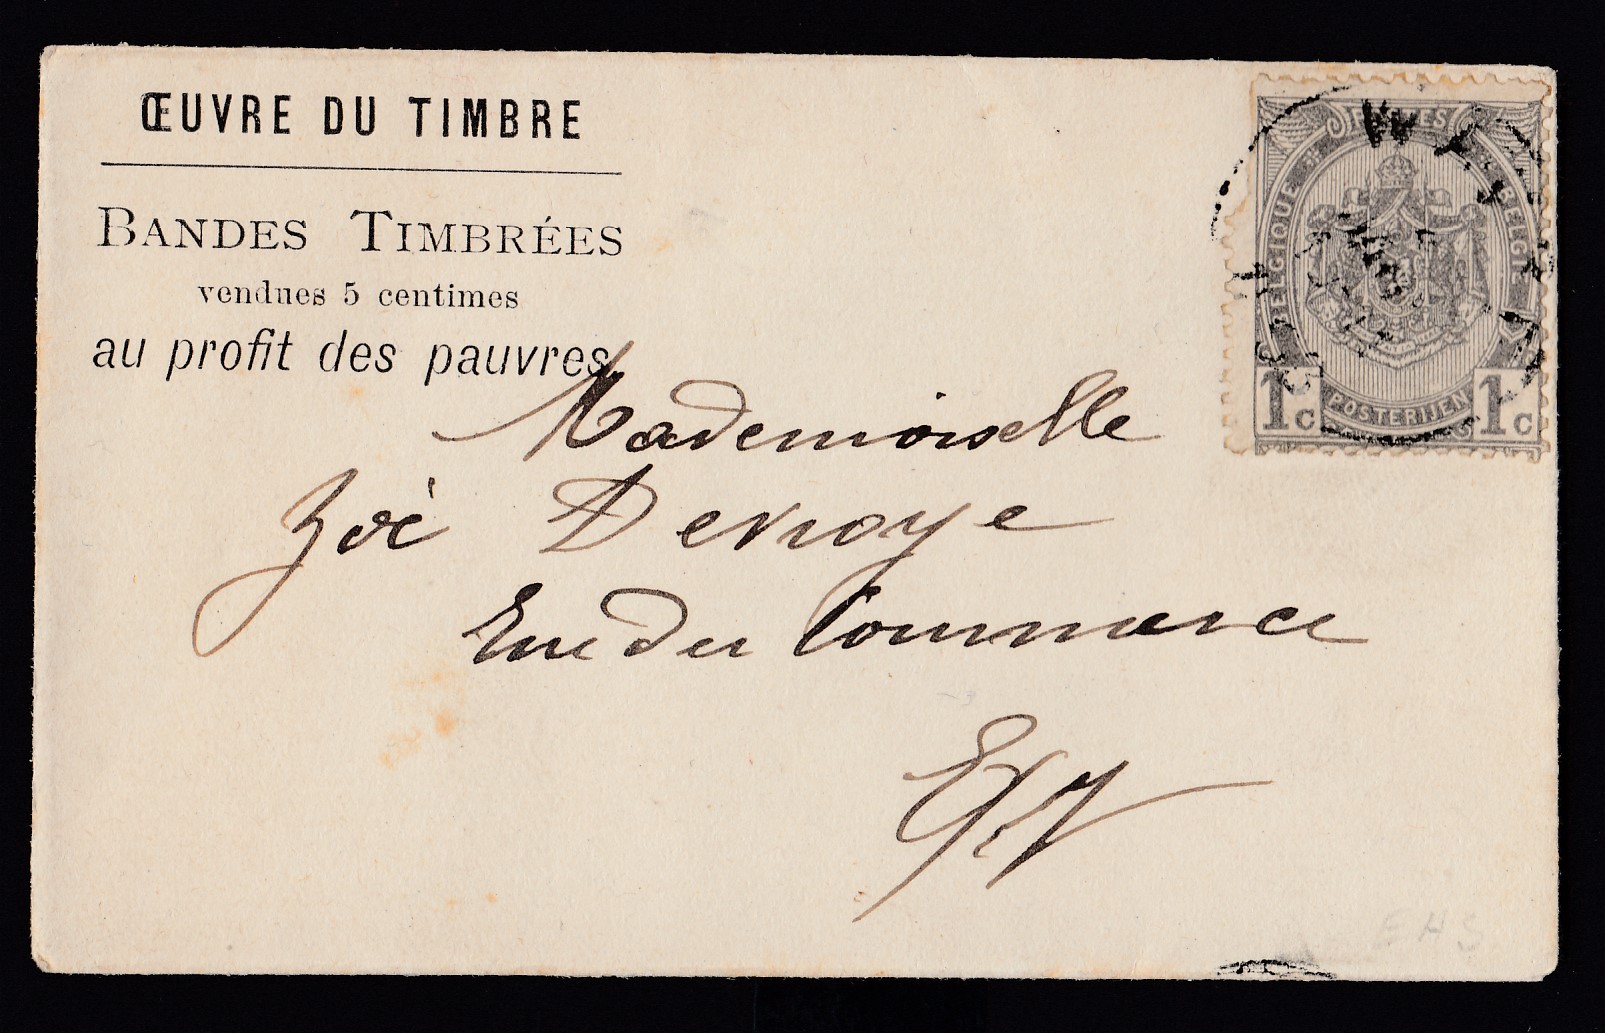 ŒUVRE DU TIMBRE
BANDES TIMBRÉES
vendues 5 centimes
au profit des pauvres
POSTES
BELGIQUE
BELGIË
POSTERIJEN
1c 1c
Mademoiselle
Zoé Denoye
Rue du Commerce
E/V
EHS